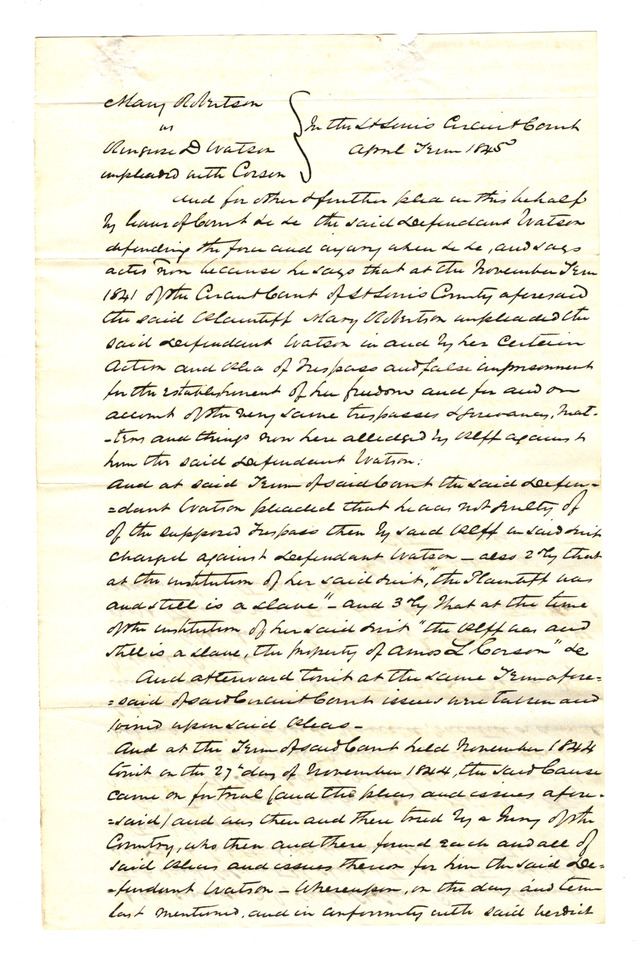 Mary Robertson
vs
Ringrose D Watson
impleaded with Corson
In the St Louis Circuit Court
April Term 1845
And for other & further plea in this behalf
by leave of Court &c &c the said Defendant Watson
defending the force and injury when &c &c, and says
actio non because he says that at the November Term
1841 of the Circuit Court of St Louis County aforesaid
the said Plaintiff Mary Robertson impleaded the
said Defendant Watson in and by her Certain
Action and Plea of Trespass and false imprisonment
for the establishment of her freedom and for and on
account of the very same trespasses & grievances, mat-
-ters and things now here alledged by Plff against
him the said Defendant Watson:
And at said Term of said Court the said Defen-
=dant Watson pleaded that he was not guilty of
of the supposed trespass then by said Plff in said suit
charged against Defendant Watson - also 2dly that
at the institution of her said suit, "the Plaintiff was
and still is a slave" - and 3dly That at the time
of the institution of her said suit "the Plff was and
still is a slave, the property of Amos L Corson" &c
And afterward towit at the same Term afore-
=said of said Circuit Court issues were taken and
joined upon said Pleas -
And at the Term of said Court held November 1844
towit on the 27th day of November 1844, the said Cause
came on for trial (and the pleas and issues afore-
=said) and was then and there tried by a Jury of the
Country, who then and there found each and all of
said Pleas and issues thereon for him the said De-
=fendant Watson - Whereupon, on the day and term
last mentioned, and in conformity with said verdict